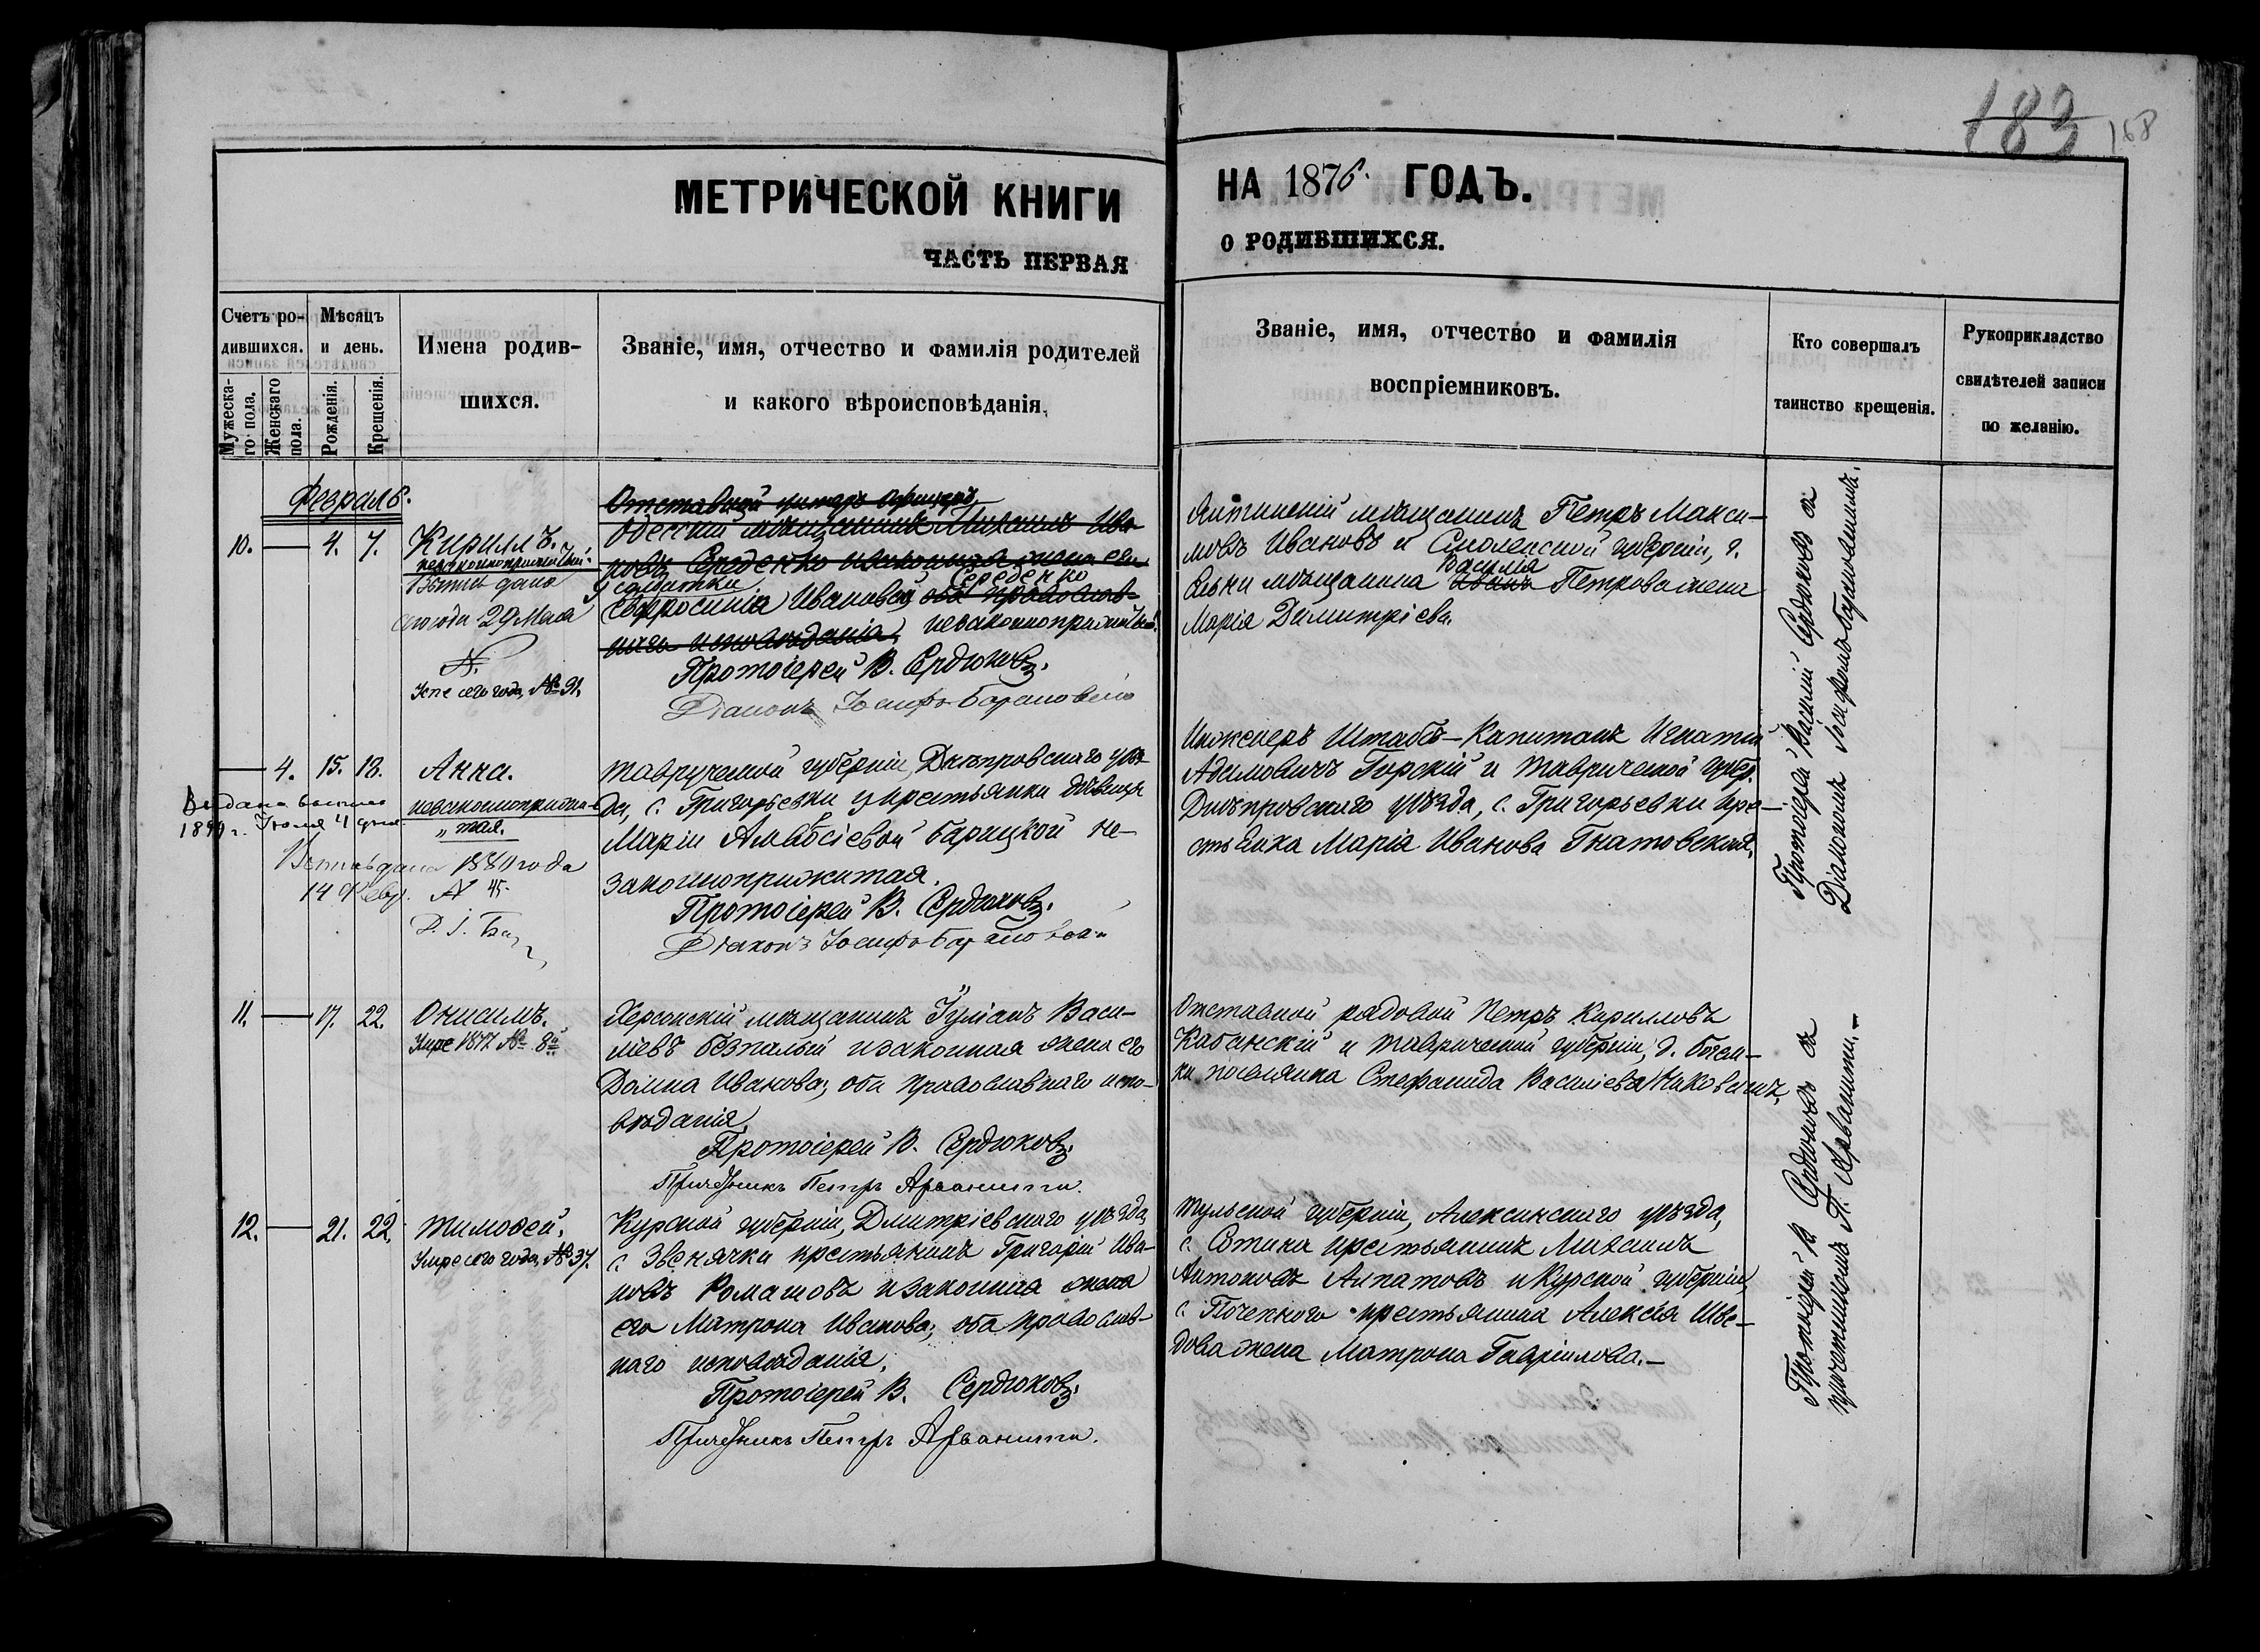 183 168
МЕТРИЧЕСКОЙ КНИГИ
НА 1876. ГОДЪ.
ЧАСТЬ ПЕРВАЯ
О РОДИВШИХСЯ.
Счетъ ро-
дившихся.
Мужеска-
го пола.
Женскаго
пола.
Мѣсяцъ
и день.
Рожденія.
Крещенія.
Имена родив-
шихся.
Званіе, имя, отчество и фамилія родителей
и какого вѣроисповѣданія.
Званіе, имя, отчество и фамилія
воспріемниковъ.
Кто совершалъ
таинство крещенія.
Рукоприкладство
свидѣтелей записи
по желанію.
Февраль.
10. — 4. 7.
Кириллъ.
незаконноприжитый.
дано
сего года 29 Мая
№
Умре сего года, № 91.
Отставной
Одесскій мѣщанинъ Михаилъ Ива-
новъ Середенко и законная жена его
У солдатки Середенко
Евфросинія Ивановой оба православ-
наго исповѣданія, незаконноприжитый.
Протоіерей В. Сердюковъ.
Діаконъ Іосифъ Барановскій
Ялтинскій мѣщанинъ Петръ Макси-
мовъ Ивановъ и Смоленской губерніи, г.
Василія
Ельни мѣщанина Ивана Петрова жена
Марія Димитріева.
Протоіерей Василій Сердюковъ съ
Діакономъ Іосифомъ Барановскимъ.
— 4. 15. 18.
Анна.
незаконноприжи-
„тая.
Выдана выпись
1890 г. Іюня 4 дня.
Выпись дана 1880 года
14 Февр. № 45
Д. І. Ба
Таврической губерніи, Днѣпровскаго уѣз-
да, с. Григорьевки у крестьянки дѣвицы
Маріи Алексіевой Барицкой не-
законноприжитая.
Протоіерей В. Сердюковъ.
Діаконъ Іосифъ Барановскій
Инженеръ Штабсъ-Капитанъ Игнатій
Адамовичъ Горскій и Таврической губер.
Днѣпровскаго уѣзда, с. Григорьевки кре-
стьянка Марія Иванова Гнатовская.
11. — 17. 22.
Онисимъ.
Умре 1877 № 8й
Херсонскій мѣщанинъ Іуліанъ Васи-
ліевъ Безпалый и законная жена его
Домна Иванова; оба православнаго испо-
вѣданія.
Протоіерей В. Сердюковъ.
Причетникъ Петръ Арванити.
Отставной рядовой Петръ Кирилловъ
Кабанскій и Таврической губерніи, д.
ки поселянка Стефанида Василіева
Протоіерей В. Сердюковъ съ
причетникомъ П. Арванити.—
12. — 21. 22.
Тимоѳей.
Умре сего года, № 37.
Курской губерніи, Дмитріевскаго уѣзда,
с. Звенячки крестьянинъ Григорій Ива-
новъ Ромашовъ и законная жена
его Матрона Иванова; оба православ-
наго исповѣданія.
Протоіерей В. Сердюковъ.
Причетникъ Петръ Арванити.
Тульской губерніи, Алексинскаго уѣзда,
с. Сотина крестьянинъ Михаилъ
Антоновъ Алпатовъ и Курской губерніи,
с. Поченного крестьянина Алексія Шве-
дова жена Матрона Гавріилова.—